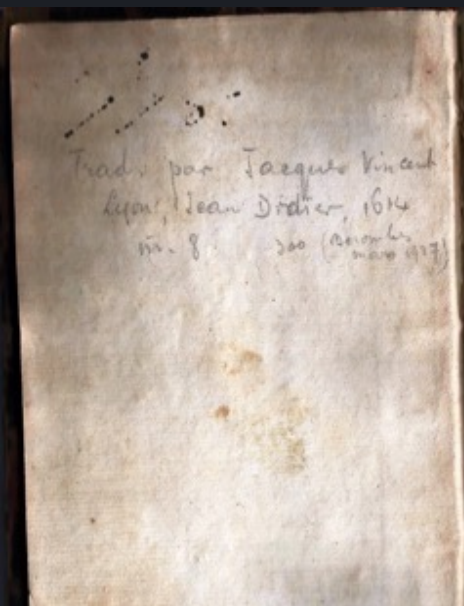 Trad. par Jacques Vincent
Lyon, Jean Didier, 1614
in-8. 300 (
mars 1927)